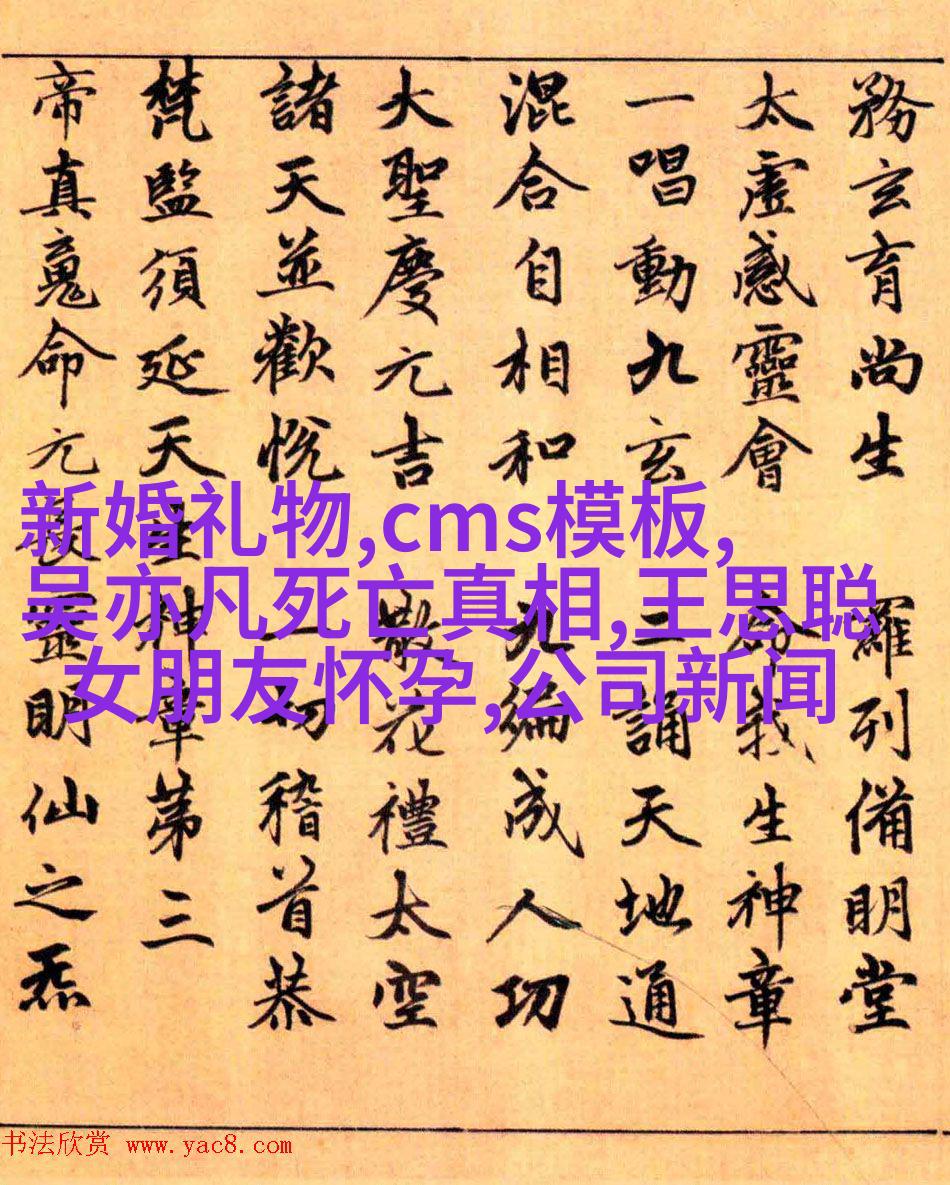 務玄育尚生 羅列備明堂
太虛感靈會 命我生神章
一唱動九玄 二誦天地通
混合自相和 九編成人功
大聖慶元吉 散花禮太空
諸天並歡悅 一切稽首恭
梵監須延天生神章第三
帝真䰟命元 靈明仙之炁
新婚礼物,cms模板,
吴亦凡死亡真相,王思聪
女朋友怀孕,公司新闻
书法欣赏 www.yac8.com